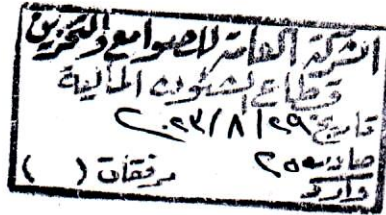 الشركة العامة للصوامع والتخزين
قطاع الشئون المالية
تاريخ ٢٠٢٣/٨/٢٩
صادر ٢٥٥ مرفقات ( )
وارد